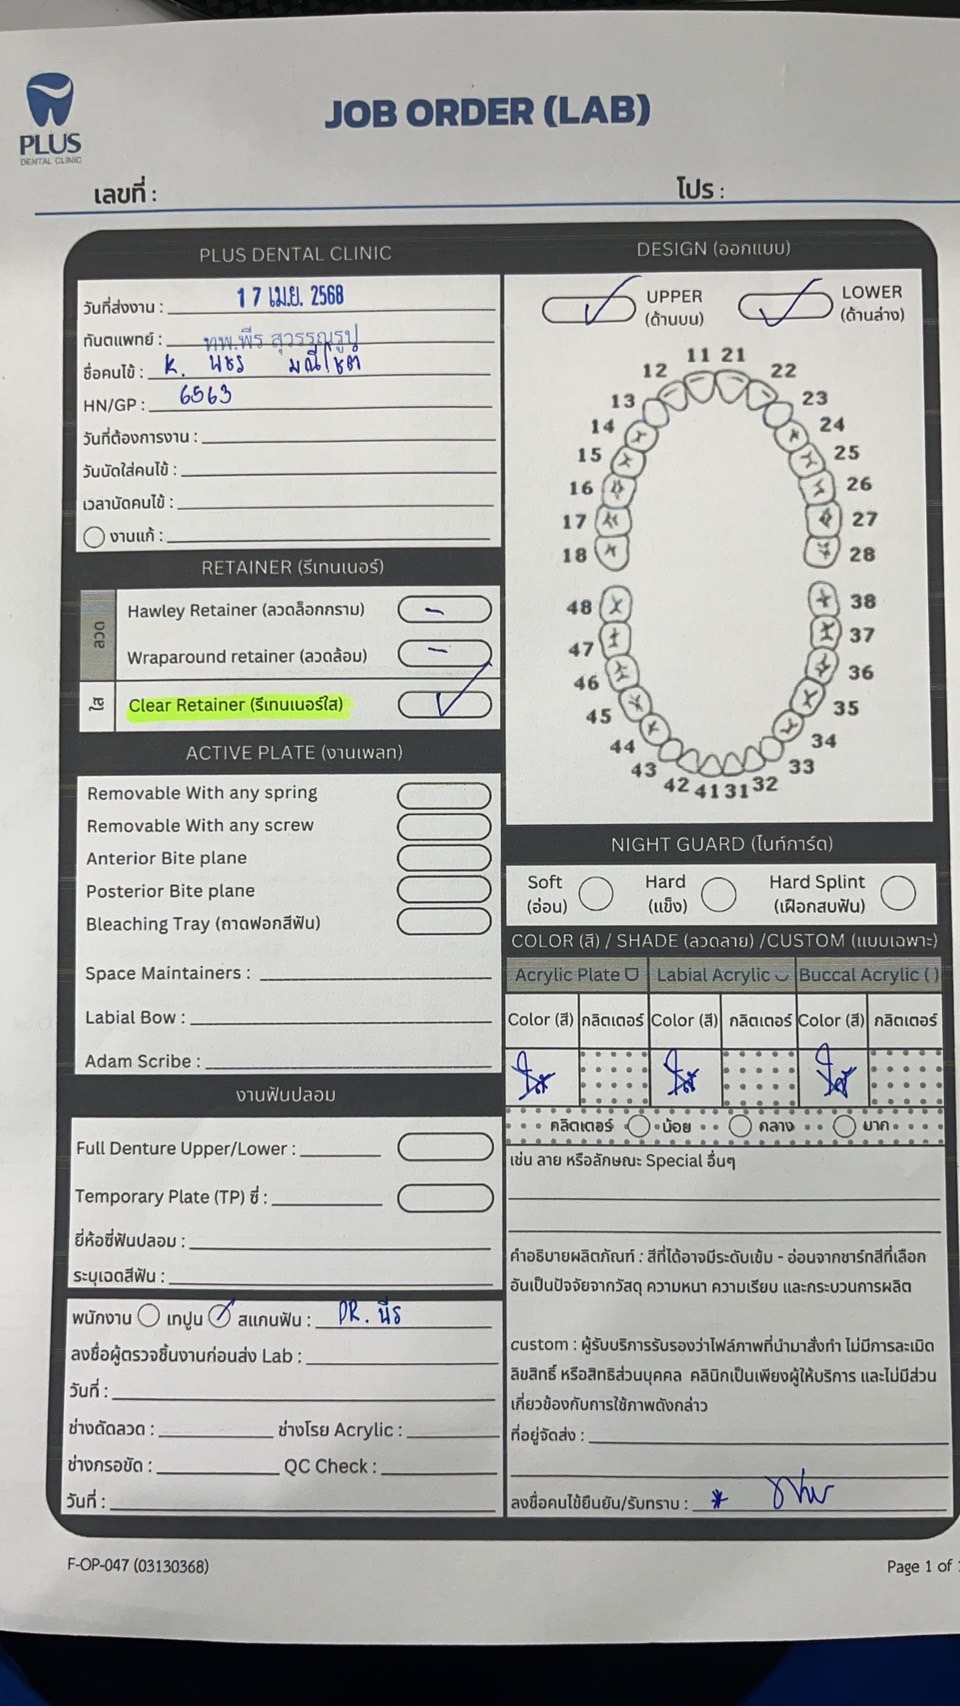 PLUS
DENTAL CLINIC
JOB ORDER (LAB)
เลขที่ :
โปร :
PLUS DENTAL CLINIC
วันที่ส่งงาน : 17 เม.ย. 2568
ทันตแพทย์ : ทพ.พีร สุวรรณรูป
ชื่อคนไข้ : K. พชร มณีโชติ
HN/GP : 6563
วันที่ต้องการงาน :
วันนัดใส่คนไข้ :
เวลานัดคนไข้ :
งานแก้ :
RETAINER (รีเทนเนอร์)
ลวด
Hawley Retainer (ลวดล็อกกราม) -
Wraparound retainer (ลวดล้อม) -
ใส
Clear Retainer (รีเทนเนอร์ใส)
ACTIVE PLATE (งานเพลท)
Removable With any spring
Removable With any screw
Anterior Bite plane
Posterior Bite plane
Bleaching Tray (ถาดฟอกสีฟัน)
Space Maintainers :
Labial Bow :
Adam Scribe :
งานฟันปลอม
Full Denture Upper/Lower :
Temporary Plate (TP) ซี่ :
ยี่ห้อซี่ฟันปลอม :
ระบุเฉดสีฟัน :
พนักงาน เทปูน สแกนฟัน : DR. พีร
ลงชื่อผู้ตรวจชิ้นงานก่อนส่ง Lab :
วันที่ :
ช่างดัดลวด : ช่างโรย Acrylic :
ช่างกรอขัด : QC Check :
วันที่ :
DESIGN (ออกแบบ)
UPPER
(ด้านบน)
LOWER
(ด้านล่าง)
11 21
12 22
13 23
14 24
15 25
16 26
17 27
18 28
48 38
47 37
46 36
45 35
44 34
43 33
42 41 31 32
NIGHT GUARD (ไนท์การ์ด)
Soft
(อ่อน)
Hard
(แข็ง)
Hard Splint
(เฝือกสบฟัน)
COLOR (สี) / SHADE (ลวดลาย) /CUSTOM (แบบเฉพาะ)
Acrylic Plate Labial Acrylic Buccal Acrylic ( )
Color (สี) กลิตเตอร์ Color (สี) กลิตเตอร์ Color (สี) กลิตเตอร์
กลิตเตอร์ น้อย กลาง มาก
เช่น ลาย หรือลักษณะ Special อื่นๆ
คำอธิบายผลิตภัณฑ์ : สีที่ได้อาจมีระดับเข้ม - อ่อนจากชาร์ทสีที่เลือก
อันเป็นปัจจัยจากวัสดุ ความหนา ความเรียบ และกระบวนการผลิต
custom : ผู้รับบริการรับรองว่าไฟล์ภาพที่นำมาสั่งทำ ไม่มีการละเมิด
ลิขสิทธิ์ หรือสิทธิส่วนบุคคล คลินิกเป็นเพียงผู้ให้บริการ และไม่มีส่วน
เกี่ยวข้องกับการใช้ภาพดังกล่าว
ที่อยู่จัดส่ง :
ลงชื่อคนไข้ยืนยัน/รับทราบ : *
F-OP-047 (03130368)
Page 1 of